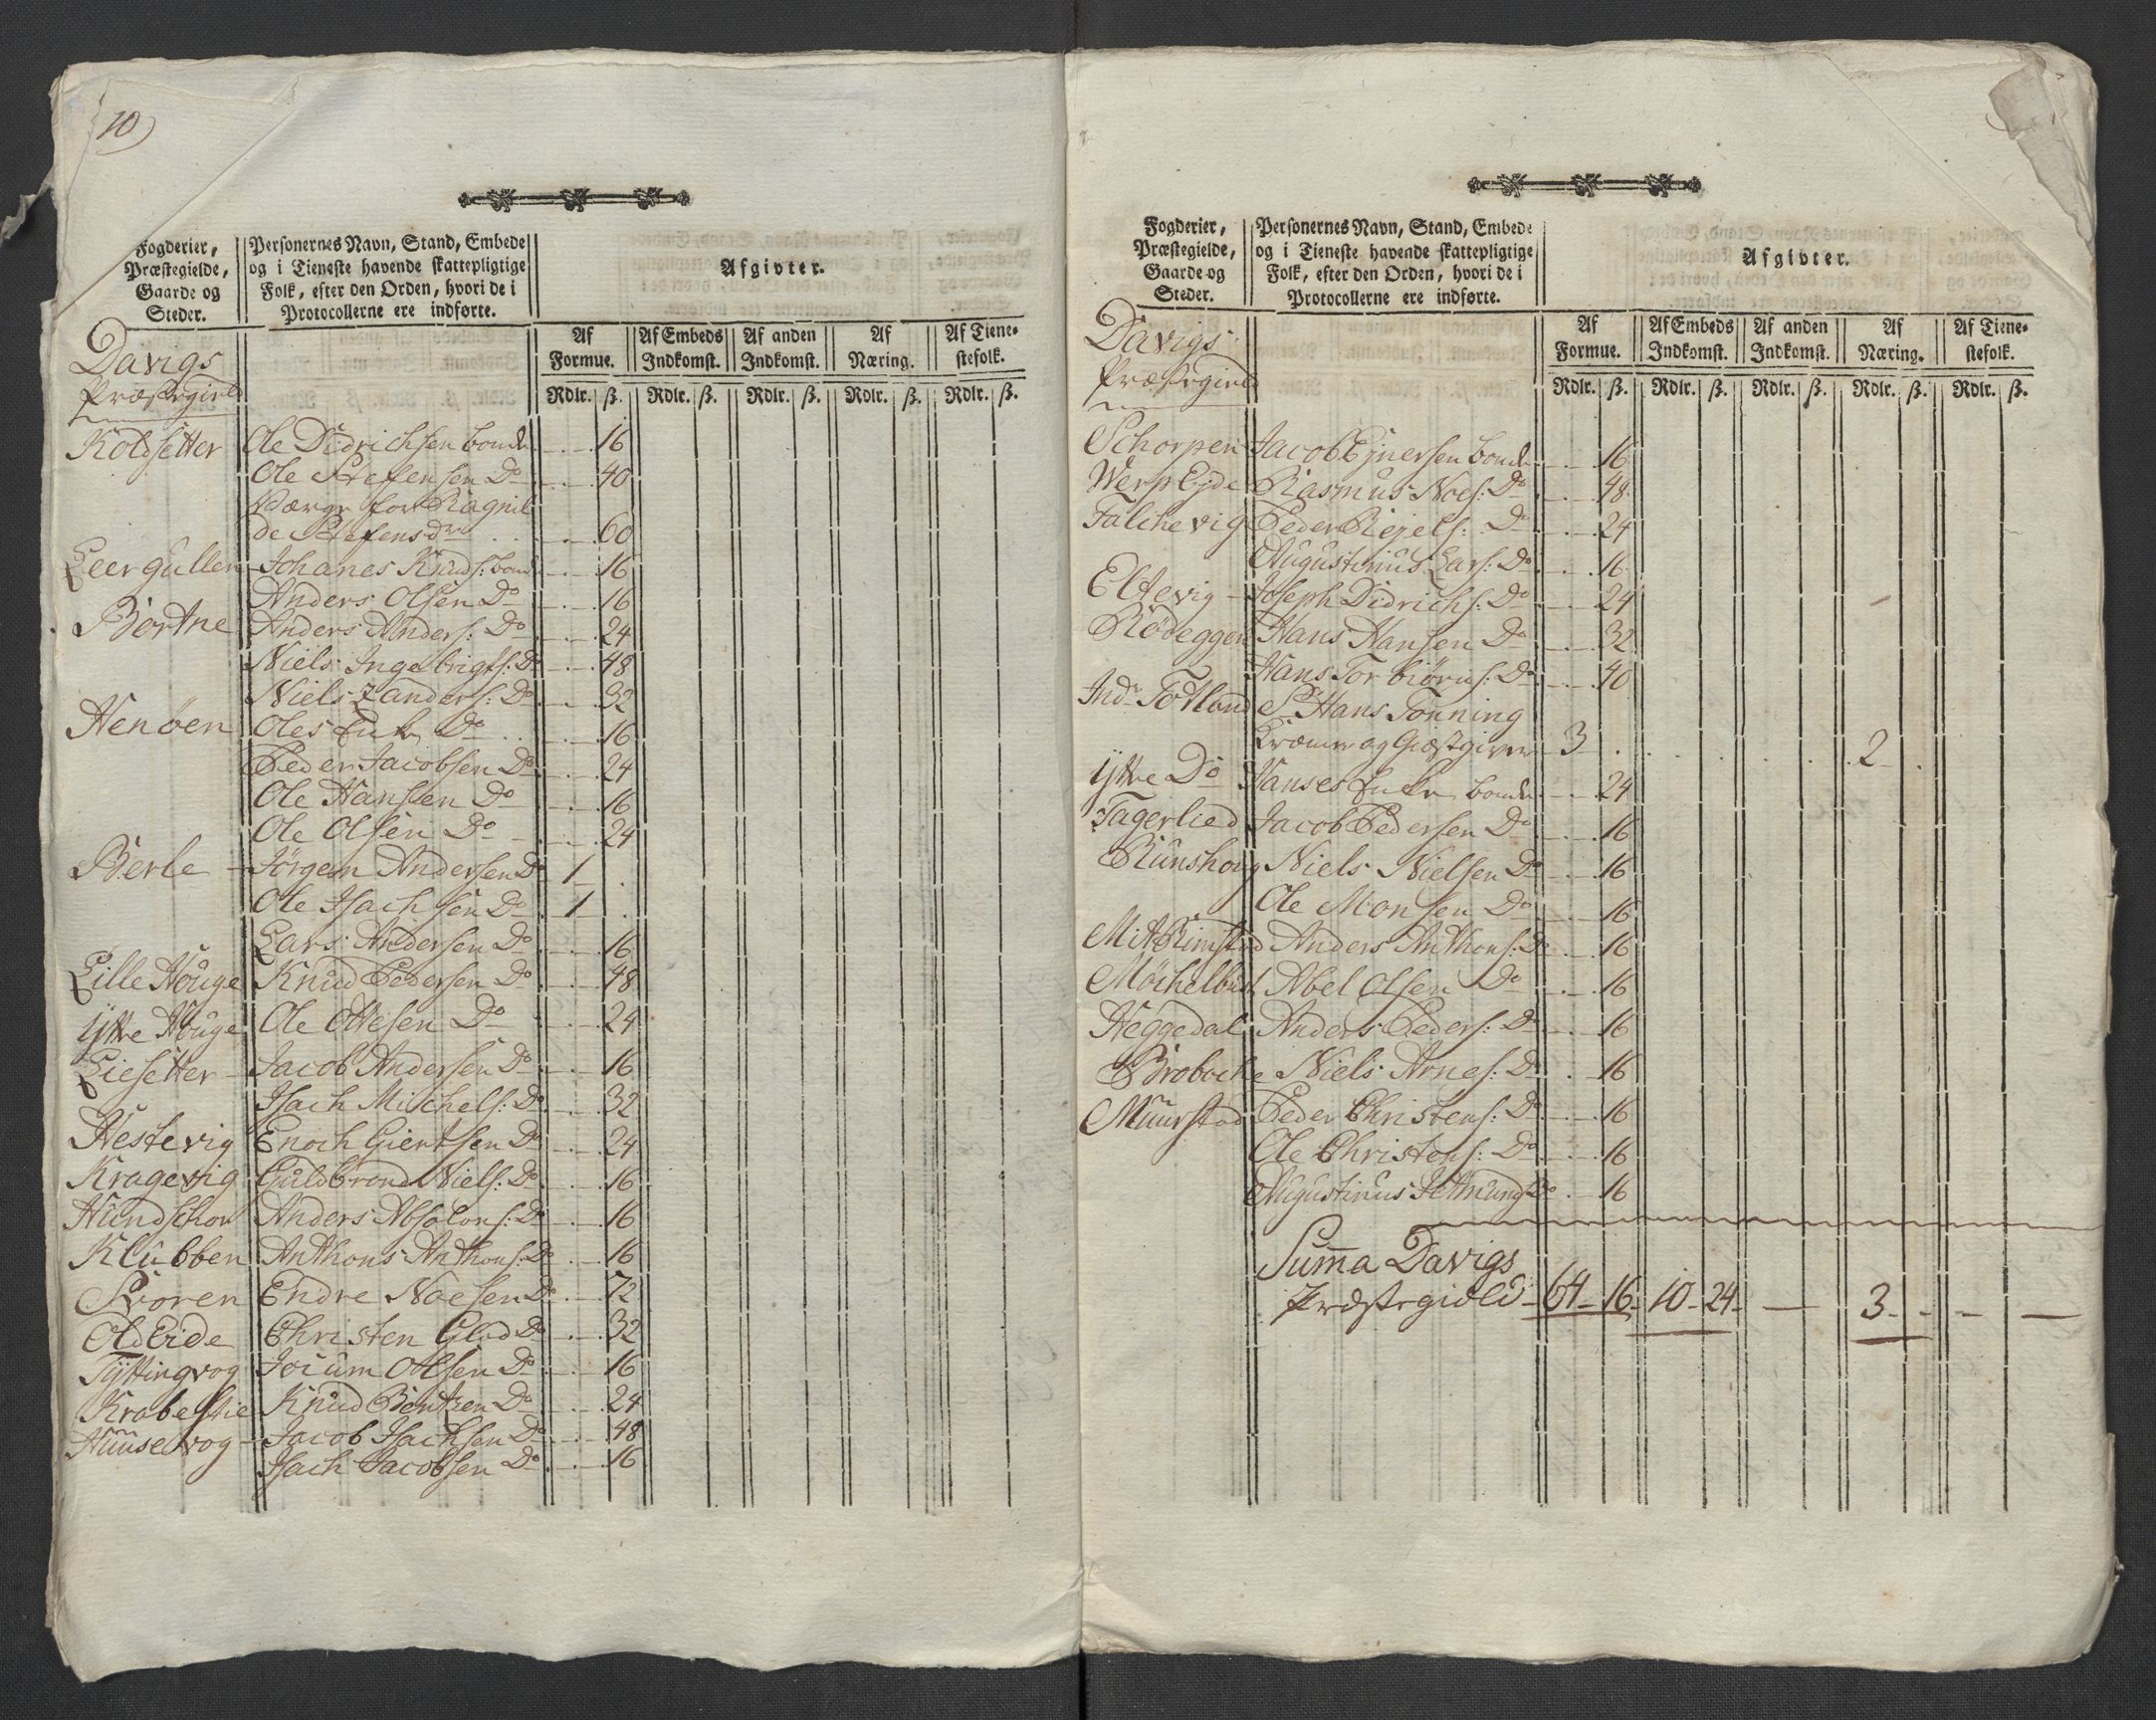 10)
Fogderier, Præstegielde, Gaarde og Steder.
Personernes Navn, Stand, Embede og i Tieneste havende skattepligtige Folk, efter den Orden, hvori de i Protocollerne ere indførte.
Afgivter.
Af Formue. Af Embeds Indkomst. Af anden Indkomst. Af Næring. Af Tienestefolk.
Rdlr. ß. Rdlr. ß. Rdlr. ß. Rdlr. ß. Rdlr. ß.
Davigs
Præstegield
Koldsetter Ole Didrichsen bonde 16
Ole Steffensen Do 40
Værge for Ragnil
de Stefensdr 60
Leergullen Johanes Knuds: bonde 16
Anders Olsen Do 16
Bortne Anders Anders: Do 24
Niels Ingebrigts: Do 48
Niels Zanders: Do 32
Henøen Oles Enke Do 16
Peder Jacobsen Do 24
Ole Hansen Do 16
Ole Olsen Do 24
Berle Jörgen Andersen Do 1
Ole Isachsen Do 1
Lars Andersen Do 16
Lille Houge Knud Pedersen Do 48
Ytre Houge Ole Ottesen Do 24
Liesetter Jacob Andersen Do 16
Isach Michels: Do 32
Hestevig Enoch Giertsen Do 24
Kragevig Guldbrand Niels: Do 16
Hundschor Anders Absolons: Do 16
Klubben Anthons Anthons: Do 16
Svoren Endre Noesen Do 72
Oldeide Christen Glad Do 32
Tyttingvog Jocum Olsen Do 16
Krabeschie Knud Bentzen Do 24
Huusevog Jacob Isachsen Do 48
Isach Jacobsen Do 16
Fogderier, Præstegielde, Gaarde og Steder.
Personernes Navn, Stand, Embede og i Tieneste havende skattepligtige Folk, efter den Orden, hvori de i Protocollerne ere indførte.
Afgivter.
Af Formue. Af Embeds Indkomst. Af anden Indkomst. Af Næring. Af Tienestefolk.
Rdlr. ß. Rdlr. ß. Rdlr. ß. Rdlr. ß. Rdlr. ß.
Davigs
Præstegield
Schorpen Jacob Ejnersen bonde 16
WerpEjde Rasmus Noes: Do 48
Falchevig Peder Rejels: Do 24
Augustinus Lars: Do 16
Eltevig Joseph Didrichs: Do 24
Rödeggen Hans Hansen Do 32
Hans Torbiörns: Do 40
Indr Totland Sr Hans Tonning
Kræmer og Giæstgiver 3 2
Ytre Do Hanses Enke bonde 24
Fagerlied Jacob Pedersen Do 16
Runshoug Niels Nielsen Do 16
Ole Monsen Do 16
Mit Rimstad Anders Anthons: Do 16
Möchelbust Abel Olsen Do 16
Heggedal Anders Peders: Do 16
Brobacke Niels Arnes: Do 16
Muurstad Peder Christens: Do 16
Ole Christens: Do 16
Augustinus Jetmunds Do 16
Summa Davigs
Præstegield 64 16 10 24 — 3 — —